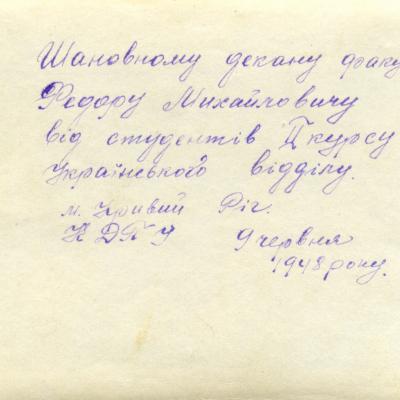 Шановному декану факу
Федору Михайловичу
від студентів ІІ курсу
Українського відділу.
м. Кривий Ріг.
КДПУ 9 червня
1948 року.